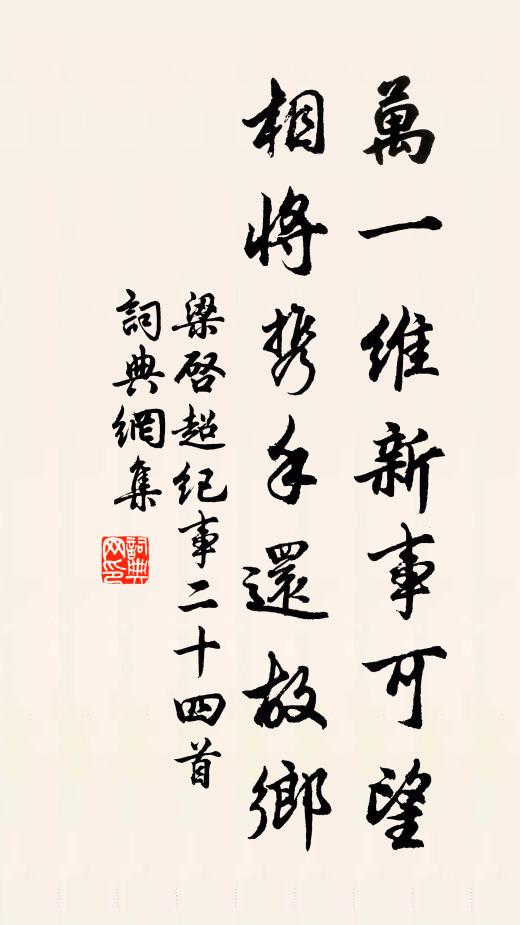 萬一維新事可望
相將携手還故鄉
梁啓超纪事二十四首
詞典網集
詞典网印